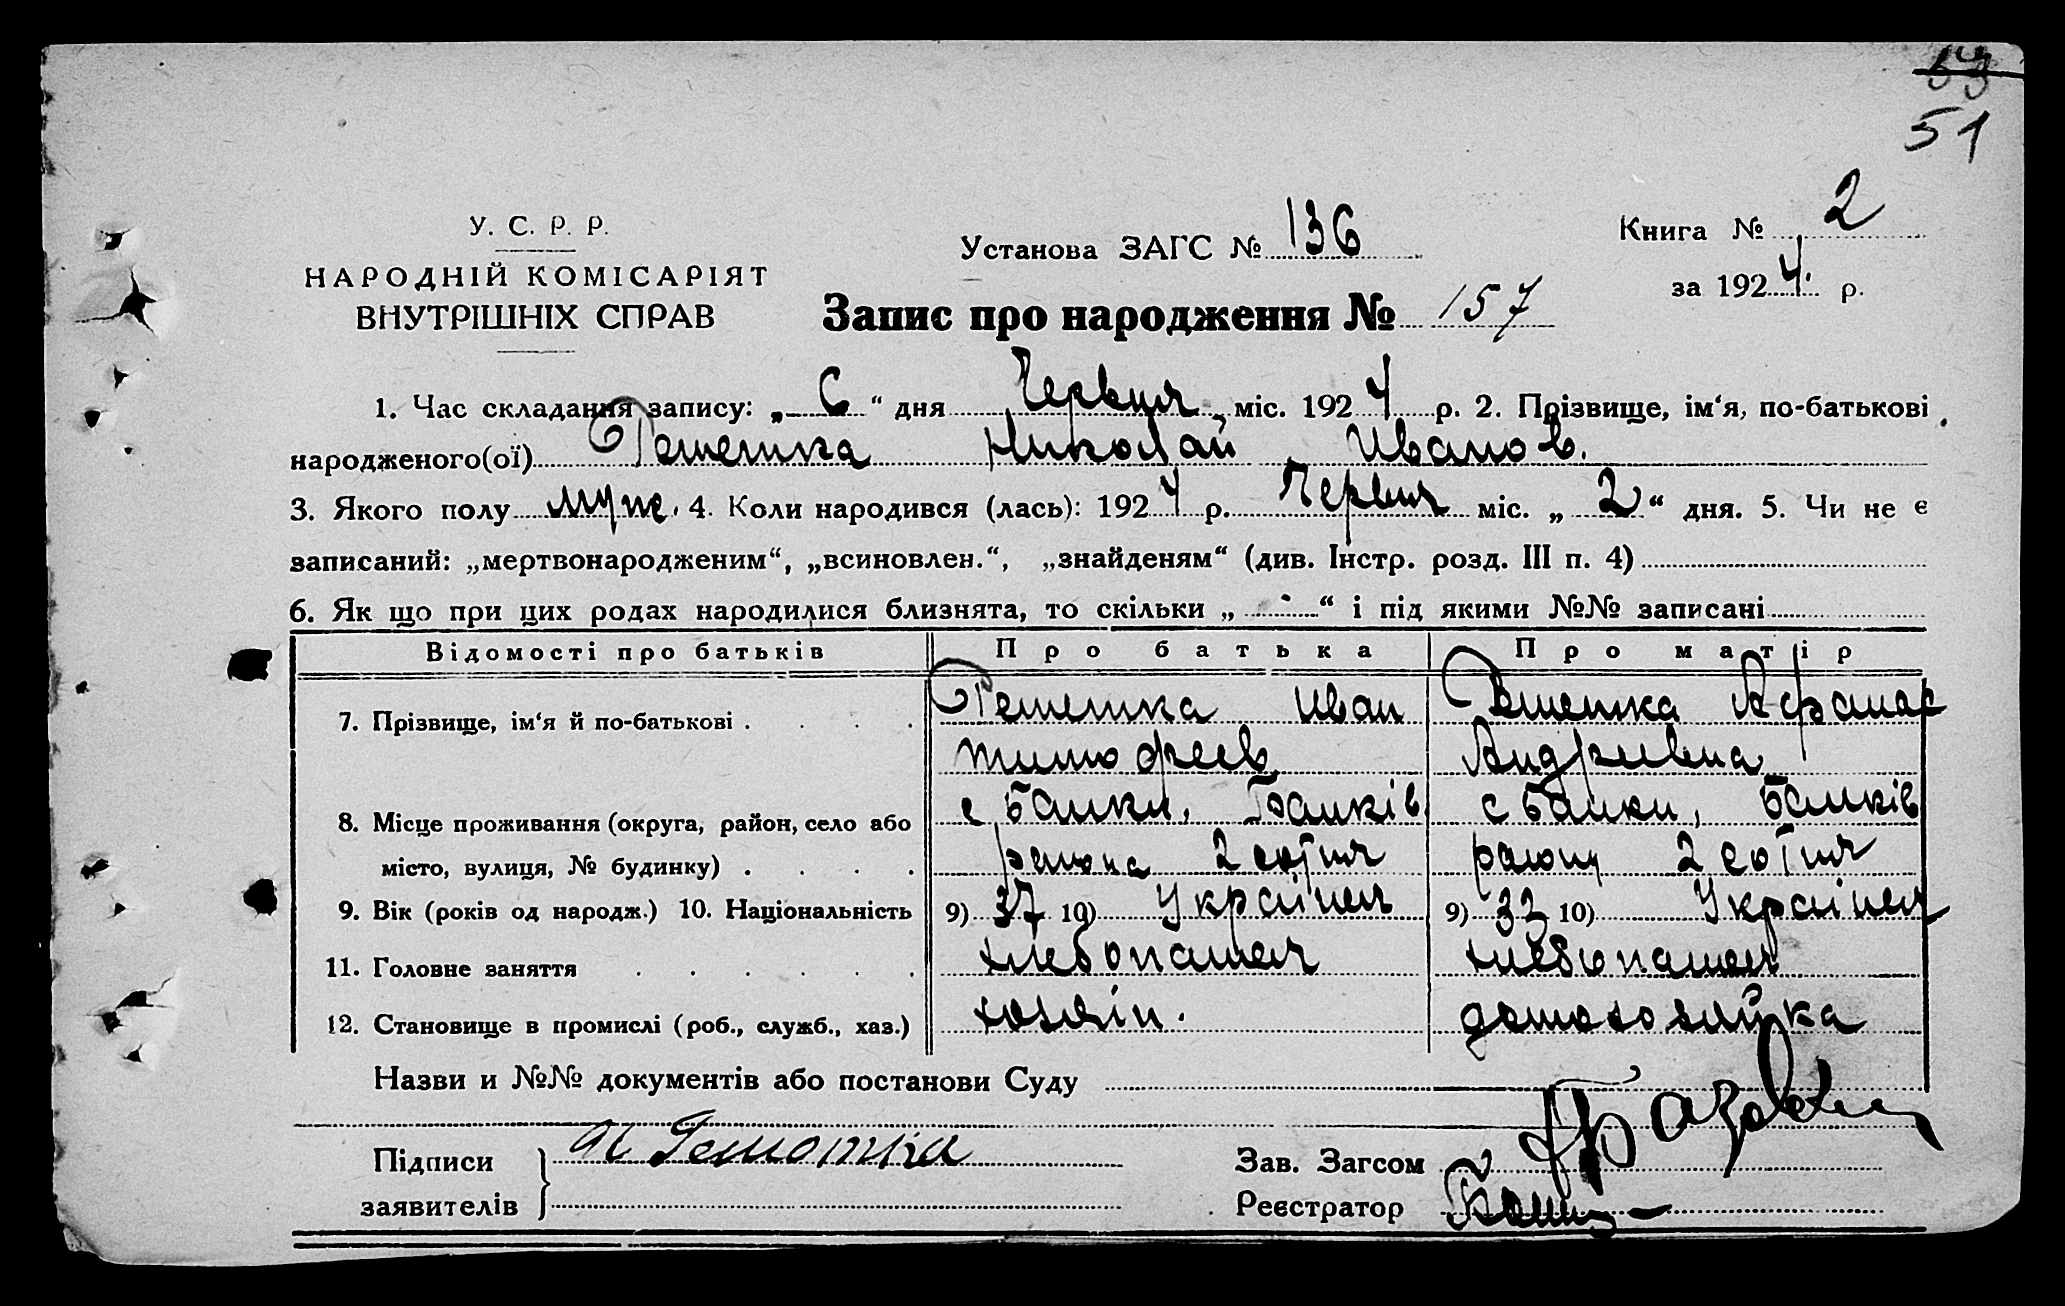 51
У. С. Р. Р.
НАРОДНІЙ КОМІСАРІЯТ
ВНУТРІШНІХ СПРАВ
Установа ЗАГС № 136
Книга № 2
за 1924 р.
Запис про народження № 157
1. Час складання запису: „ 6 “ дня Червця міс. 1924 р. 2. Прізвище, ім‘я, по-батькові
народженого(ої) Решетка Николай Иванов.
3. Якого полу муж. 4. Коли народився (лась): 1924 р. Червця міс. „ 2 “ дня. 5. Чи не є
записаний: „мертвонародженим“, „всиновлен.“, „знайденям“ (див. Інстр. розд. III п. 4)
6. Як що при цих родах народилися близнята, то скільки „ - “ і під якими №№ записані
Відомості про батьків Про батька Про матір
7. Прізвище, ім‘я й по-батькові . . . . Решетка Иван Решетка
Тимофеев Андриевна
8. Місце проживання (округа, район, село або с Банки, Банків с Банки, Банків
місто, вулиця, № будинку) . . . . района 2 сотня району 2 сотня
9. Вік (років од народж.) 10. Національність 9) 37 10) Українец 9) 32 10) Українец
11. Головне заняття . . . . . . хлебопашец хлебопашец
12. Становище в промислі (роб., служб., хаз.) хозяін. домохозяйка
Назви и №№ документів або постанови Суду
Підписи
заявителів } И Решотка
Зав. Загсом
Реєстратор